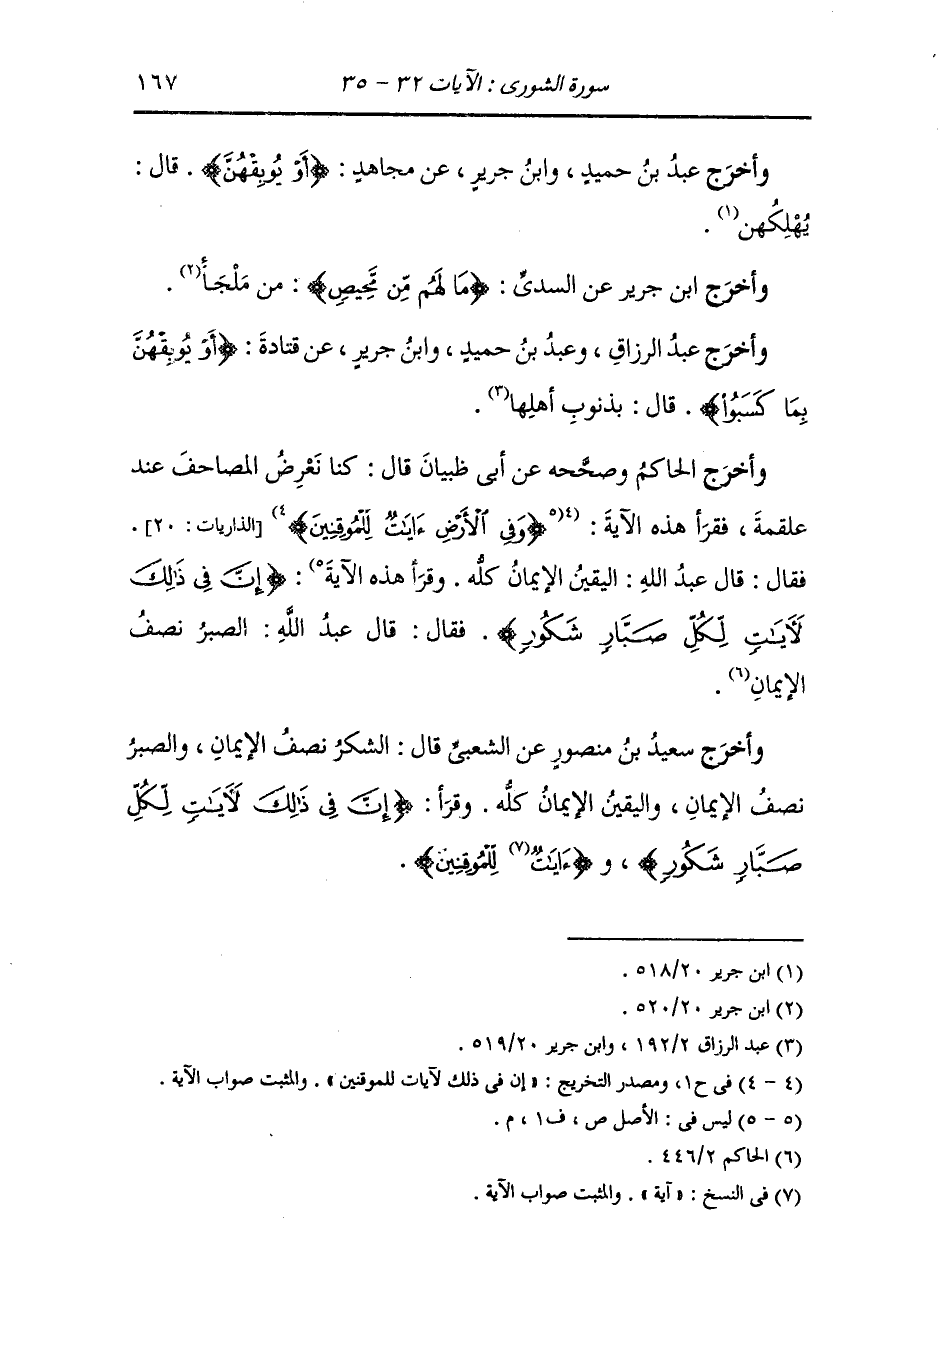 سورة الشورى : الآيات ٣٢ - ٣٥ ١٦٧
وأخرَج عبدُ بنُ حميدٍ ، وابنُ جريرٍ ، عن مجاهدٍ : ﴿أَوْ يُوبِقْهُنَّ﴾ . قال :
يُهْلِكُهن(١) .
وأخرَج ابن جرير عن السدىِّ : ﴿مَا لَهُم مِّن مَّحِيصٍ﴾ : من مَلْجَأٍ(٢) .
وأخرَج عبدُ الرزاقِ ، وعبدُ بنُ حميدٍ ، وابنُ جريرٍ ، عن قتادةَ : ﴿أَوْ يُوبِقْهُنَّ
بِمَا كَسَبُواْ﴾ . قال : بذنوبِ أهلِها(٣) .
وأخرَج الحاكمُ وصحَّحه عن أبى ظبيانَ قال : كنا نَعْرِضُ المصاحفَ عند
علقمةَ ، فقرَأ هذه الآيةَ : (٤)(٥ ﴿وَفِى ٱلْأَرْضِ ءَايَٰتٌ لِّلْمُوقِنِينَ﴾٤) [الذاريات : ٢٠] .
فقال : قال عبدُ اللهِ : اليقينُ الإيمانُ كلُّه . وقرَأ هذه الآيةَ٥) : ﴿إِنَّ فِى ذَٰلِكَ
لَأَيَٰتٍ لِّكُلِّ صَبَّارٍ شَكُورٍ﴾ . فقال : قال عبدُ اللَّهِ : الصبرُ نصفُ
الإيمانِ(٦) .
وأخرَج سعيدُ بنُ منصورٍ عن الشعبىِّ قال : الشكرُ نصفُ الإيمانِ ، والصبرُ
نصفُ الإيمانِ ، واليقينُ الإيمانُ كلُّه . وقرَأ : ﴿إِنَّ فِى ذَٰلِكَ لَأَيَٰتٍ لِّكُلِّ
صَبَّارٍ شَكُورٍ﴾ ، و ﴿ءَايَٰتٌ(٧) لِّلْمُوقِنِينَ﴾ .
(١) ابن جرير ٥١٨/٢٠ .
(٢) ابن جرير ٥٢٠/٢٠ .
(٣) عبد الرزاق ١٩٢/٢ ، وابن جرير ٥١٩/٢٠ .
(٤ - ٤) فى ح١، ومصدر التخريج : « إن فى ذلك لآيات للموقنين » . والمثبت صواب الآية .
(٥ - ٥) ليس فى : الأصل ص ، ف١ ، م .
(٦) الحاكم ٤٤٦/٢ .
(٧) فى النسخ : « آية » . والمثبت صواب الآية .